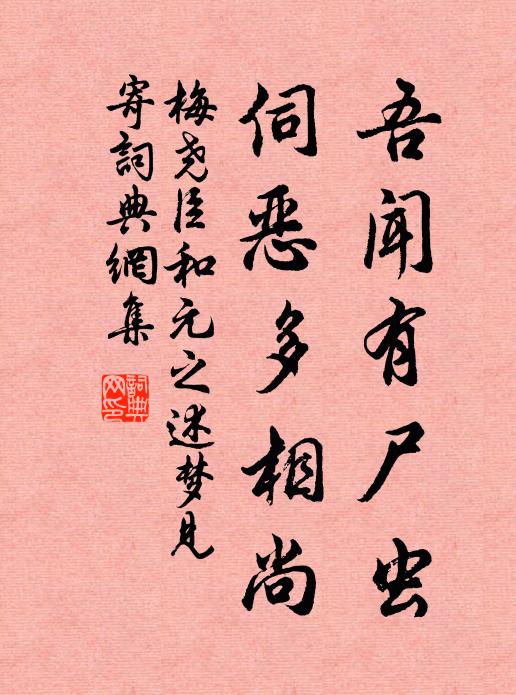 吾闻有尸虫
伺恶多相尚
梅尧臣和元之述梦见
寄詞典網集
詞典
网印